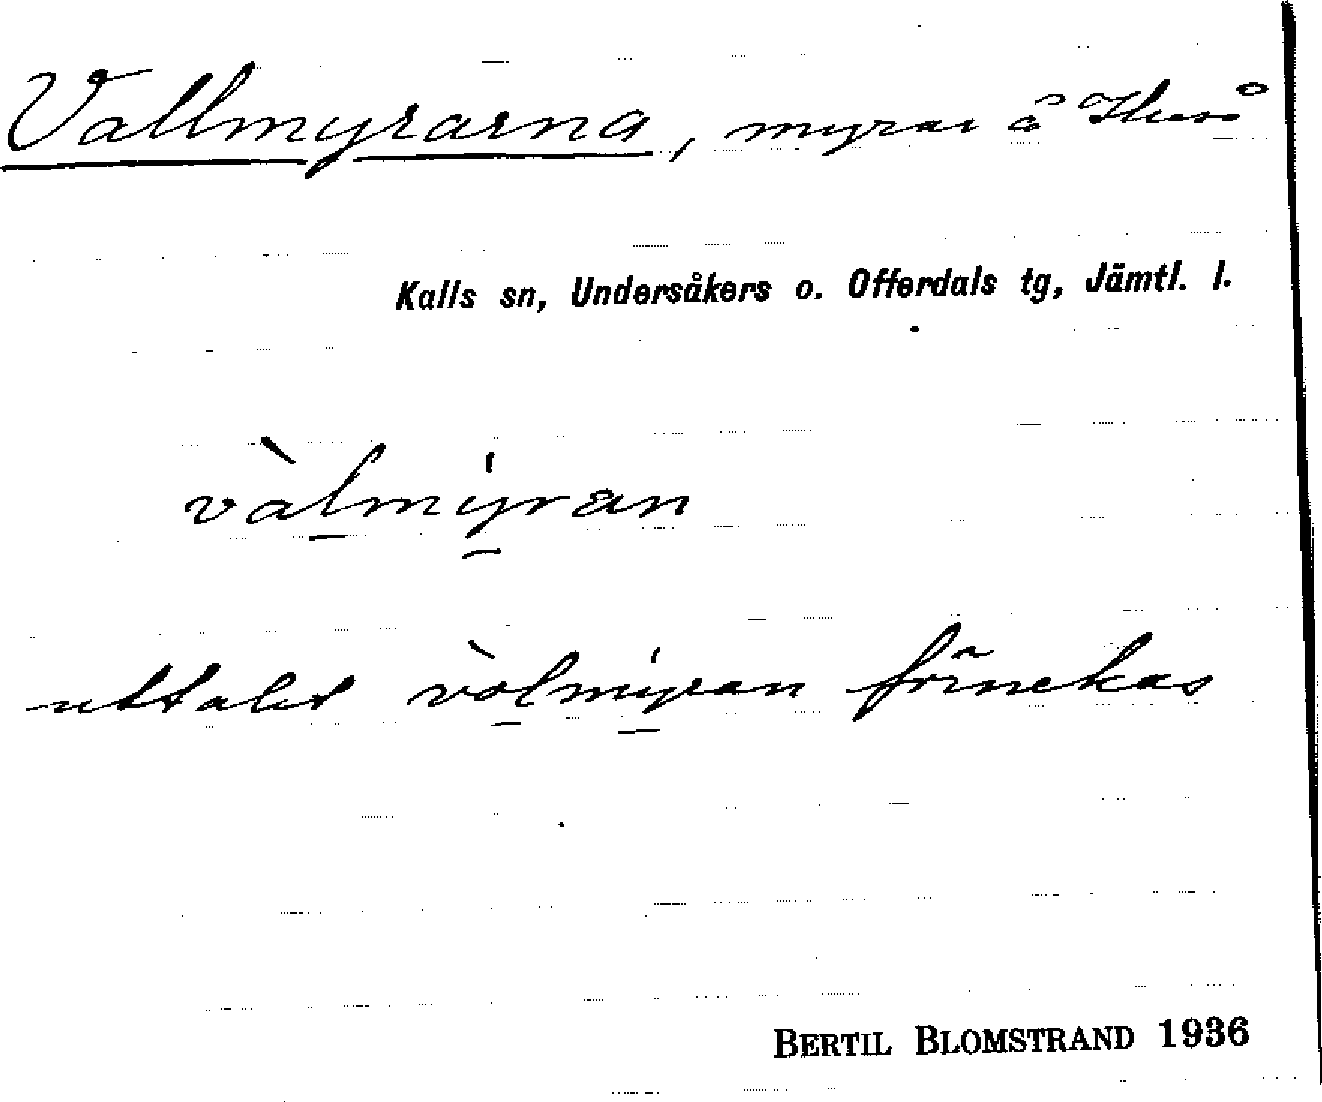 Vallmyrarna, myrar å Huså
Kalls sn, Undersåkers o. Offerdals tg, Jämtl. l.
vàlmýran
uttalet vòlmýran förnekas
BERTIL BLOMSTRAND 1936